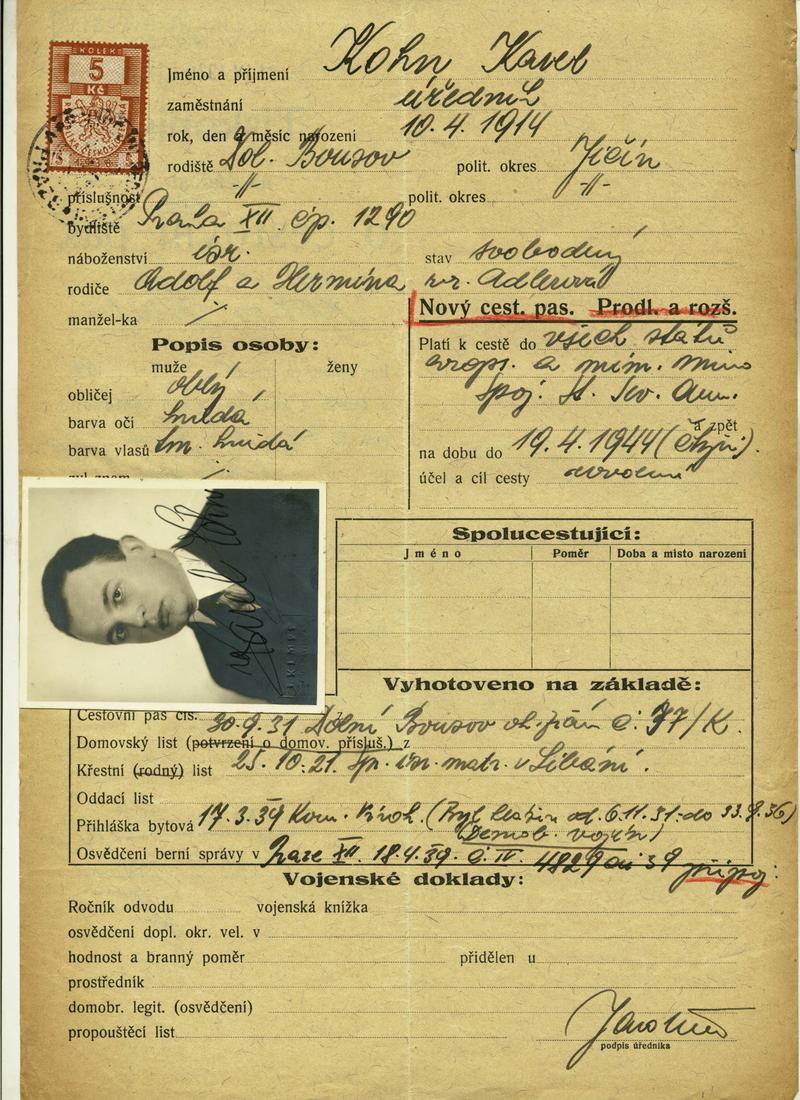 KOLEK
5
Kč
Jméno a příjmení Kohn Karel
zaměstnání úředník
rok, den a měsíc narození 10.4.1914
rodiště Dol. Bousov polit. okres Jičín
příslušnost -//- polit. okres -//-
bydliště Praha XII čp. 1290
náboženství isr. stav svobodný
rodiče Adolf a Hermína roz. Adlerová
manžel-ka /
Nový cest. pas. Prodl. a rozš.
Popis osoby:
muže ženy
obličej oblý
barva očí hnědá
barva vlasů tm. hnědá
Platí k cestě do všech států
evrops. a mim. mimo
Spoj. St. Sev. Am.
a zpět
na dobu do 19.4.1944 (
účel a cíl cesty
Spolucestující:
Jméno Poměr Doba a místo narození
Karel Kohn
Vyhotoveno na základě:
Cestovní pas čís. 30.9.31 Dolní Bousov č. 77/K.
Domovský list (potvrzení o domov. přísluš.) z
Křestní (rodný) list 25.10.21. isr. matr. v Libáni.
Oddací list
Přihláška bytová 17.3.39 Kom. (Byl od 6.11.31. do
(Demob. voják)
Osvědčení berní správy v Praze XII. 18.4.39. č. IV. 4829 39 připoj.
Vojenské doklady:
Ročník odvodu vojenská knížka
osvědčení dopl. okr. vel. v
hodnost a branný poměr přidělen u
prostředník
domobr. legit. (osvědčení)
propouštěcí list
podpis úředníka